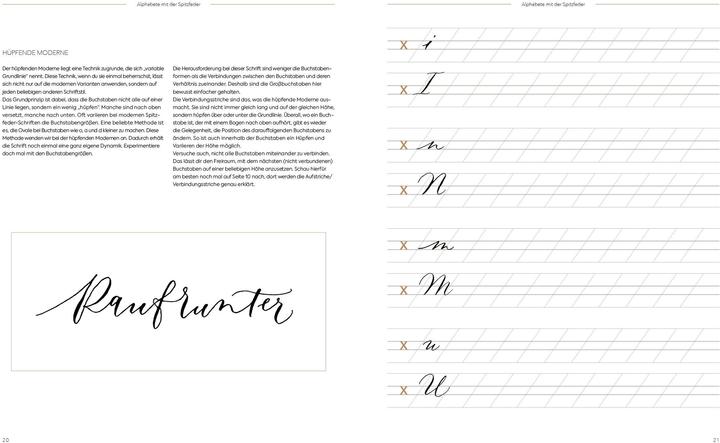 Alphabete mit der Spitzfeder
HÜPFENDE MODERNE
Der hüpfenden Moderne liegt eine Technik zugrunde, die sich „variable
Grundlinie" nennt. Diese Technik, wenn du sie einmal beherrschst, lässt
sich nicht nur auf die modernen Varianten anwenden, sondern auf
jeden beliebigen anderen Schriftstil.
Das Grundprinzip ist dabei, dass die Buchstaben nicht alle auf einer
Linie liegen, sondern ein wenig „hüpfen". Manche sind nach oben
versetzt, manche nach unten. Oft variieren bei modernen Spitz-
feder-Schriften die Buchstabengrößen. Eine beliebte Methode ist
es, die Ovale bei Buchstaben wie o, a und d kleiner zu machen. Diese
Methode wenden wir bei der hüpfenden Modernen an. Dadurch erhält
die Schrift noch einmal eine ganz eigene Dynamik. Experimentiere
doch mal mit den Buchstabengrößen.
Die Herausforderung bei dieser Schrift sind weniger die Buchstaben-
formen als die Verbindungen zwischen den Buchstaben und deren
Verhältnis zueinander. Deshalb sind die Großbuchstaben hier
bewusst einfacher gehalten.
Die Verbindungsstriche sind das, was die hüpfende Moderne aus-
macht. Sie sind nicht immer gleich lang und auf der gleichen Höhe,
sondern hüpfen über oder unter die Grundlinie. Überall, wo ein Buch-
stabe ist, der mit einem Bogen nach oben aufhört, gibt es wieder
die Gelegenheit, die Position des darauffolgenden Buchstabens zu
ändern. So ist auch innerhalb der Buchstaben ein Hüpfen und
Variieren der Höhe möglich.
Versuche auch, nicht alle Buchstaben miteinander zu verbinden.
Das lässt dir den Freiraum, mit dem nächsten (nicht verbundenen)
Buchstaben auf einer beliebigen Höhe anzusetzen. Schau hierfür
am besten noch mal auf Seite 10 nach, dort werden die Aufstriche/
Verbindungsstriche genau erklärt.
Raufrunter
20
Alphabete mit der Spitzfeder
x i
x I
x n
x N
x m
x M
x u
x U
21